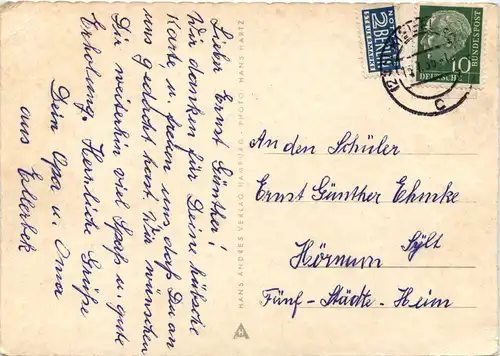 Lieber Ernst Günther!
Wir danken für Deine hübsche
Karte, u. freuen uns daß Du an
uns gedacht hast. Wir wünschen
Dir weiterhin viel Spaß u. gute
Erholung. Herzliche Grüße
Dein Opa u. Oma
aus Ellerbek
HANS ANDRES VERLAG HAMBURG · PHOTO: HANS HARTZ
NOTOPFER
2 BERLIN
STEUERMARKE
10
DEUTSCHE BUNDESPOST
An den Schüler
Ernst Günther Ehmke
Sylt
Hörnum
Fünf-Städte-Heim